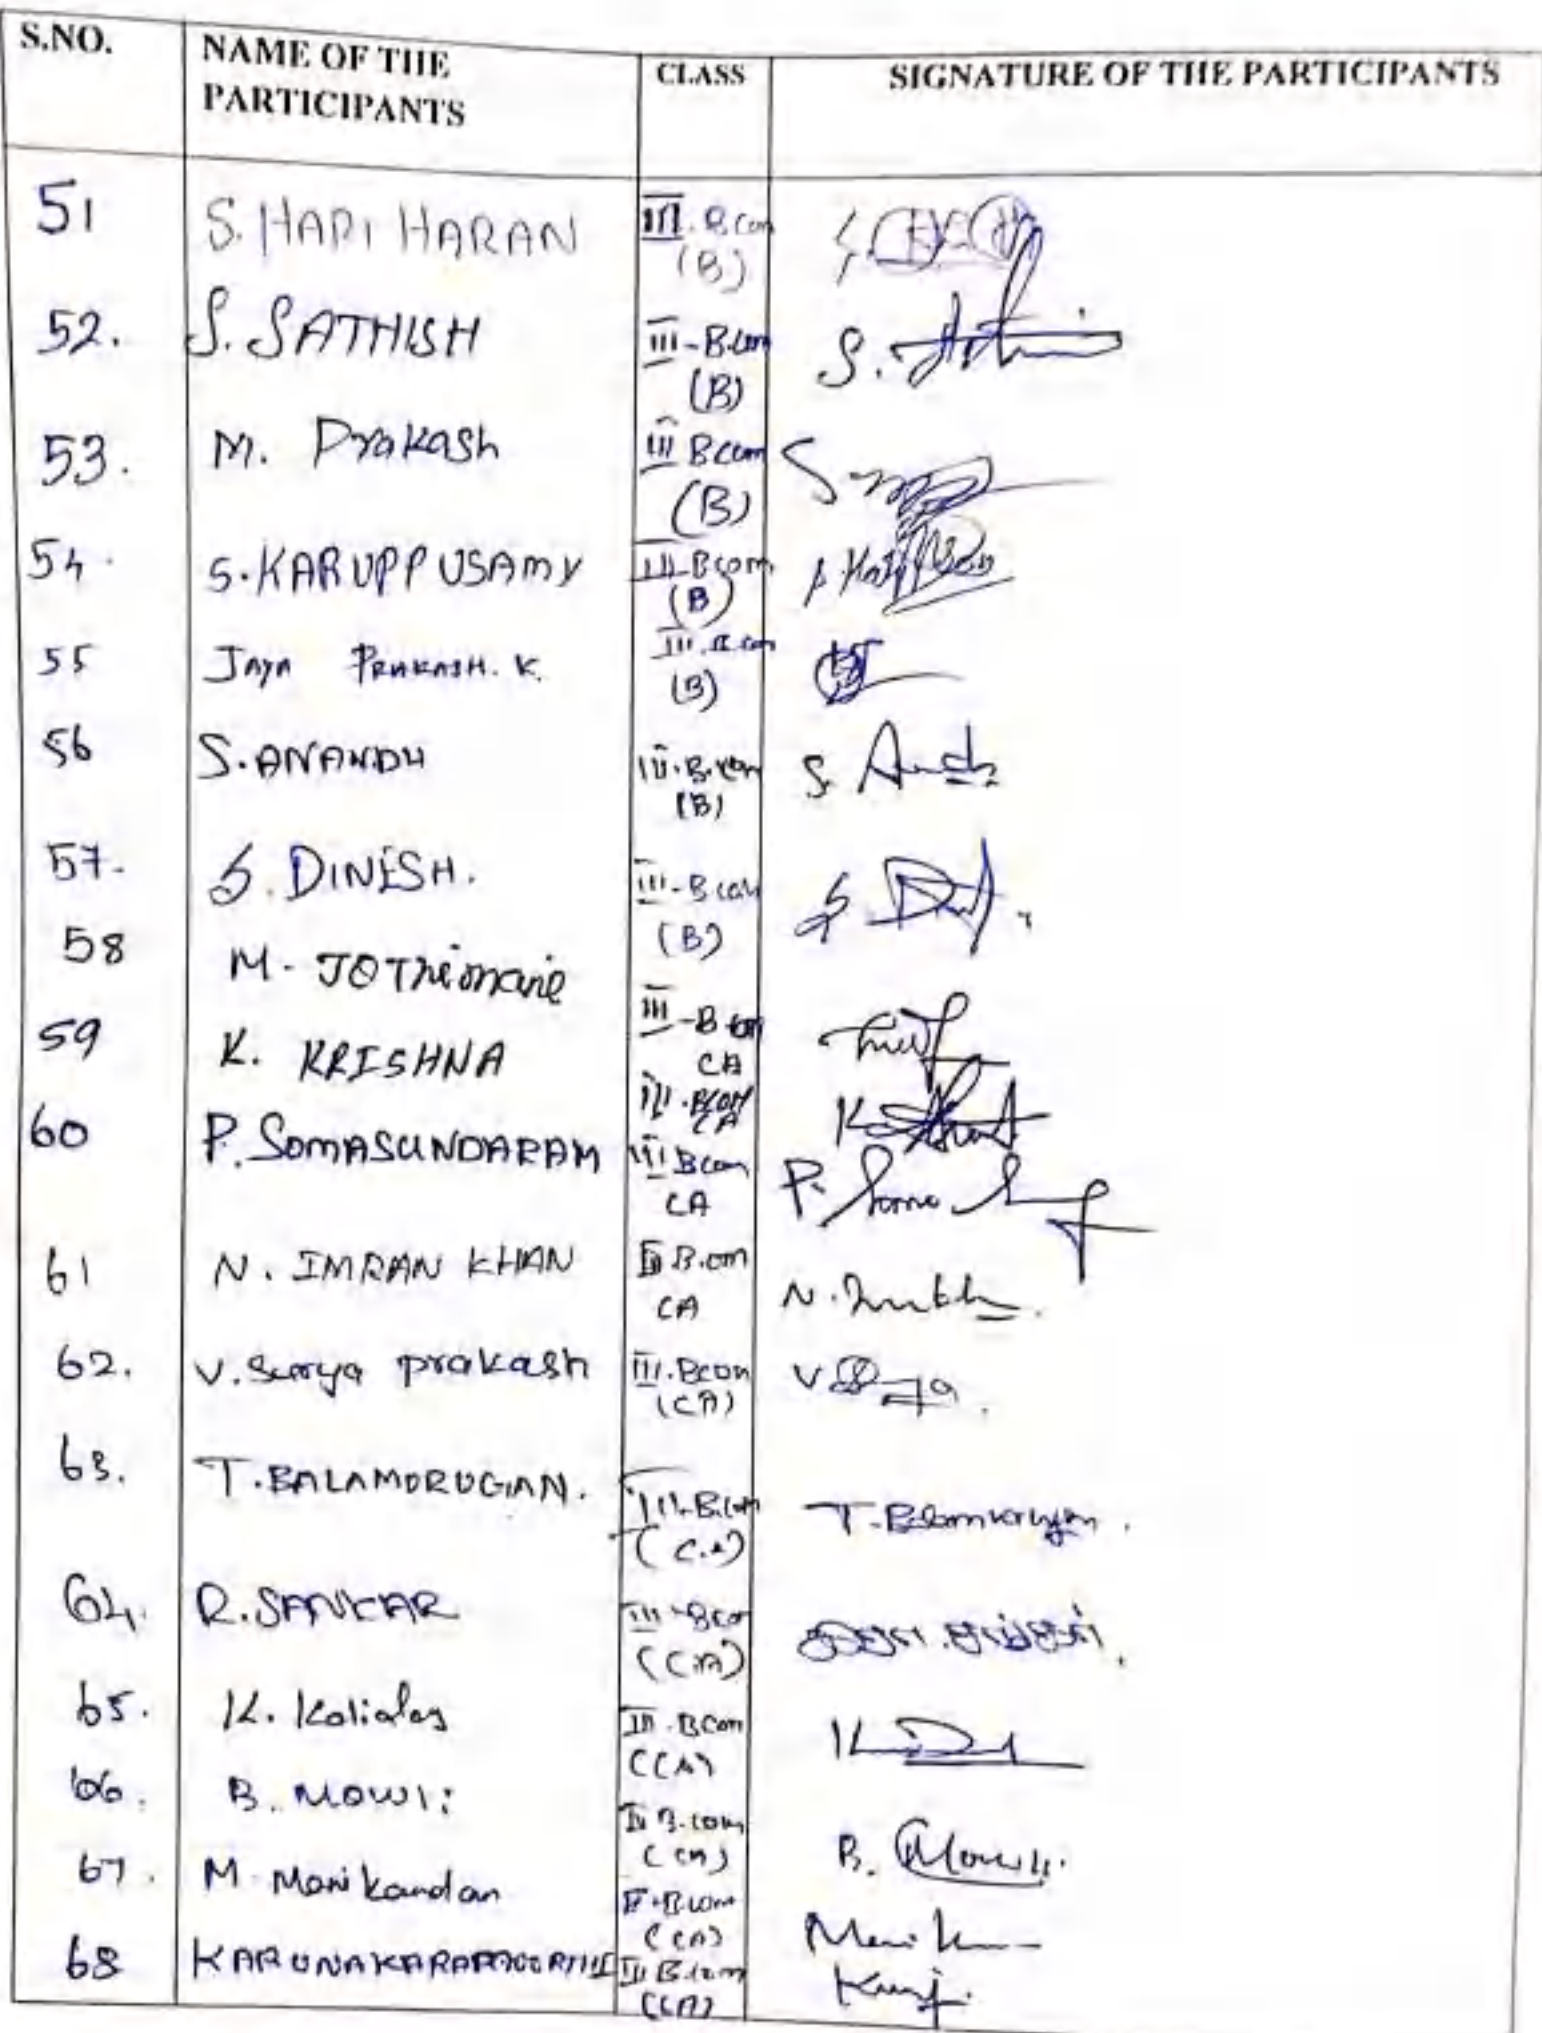 S.NO. NAME OF THE PARTICIPANTS CLASS SIGNATURE OF THE PARTICIPANTS
51 S. HARI HARAN III. B.com (B)
52. S. SATHISH III-B.com (B) S.
53. M. Prakash III Bcom (B)
54. S.KARUPPUSAMY III-Bcom (B)
55 JAYA PRAKASH. K. III. B.com (B)
56 S.ANANDH III.B.com (B) S.
57. S. DINESH. III-Bcom (B) S.
58 M. JOThimani III-Bcom CA
59 K. KRISHNA III.BCOM CA K
60 P. SOMASUNDARAM III Bcom CA P.
61 N. IMRAN KHAN III B.om CA N.
62. V. Surya prakash III.Bcom (CA) V
63. T.BALAMURUGAN. III-B.com (C.A) T. Balamurugan.
64. R.SANKAR III-Bcom (CA)
65. K. III.BCom (CA) K
66. B. Mowli III B.com (CA) B. Mowli.
67. M. Manikandan III.B.com (CA) Mani
68 KARUNAKARAMOORTHI III B.com (CA)